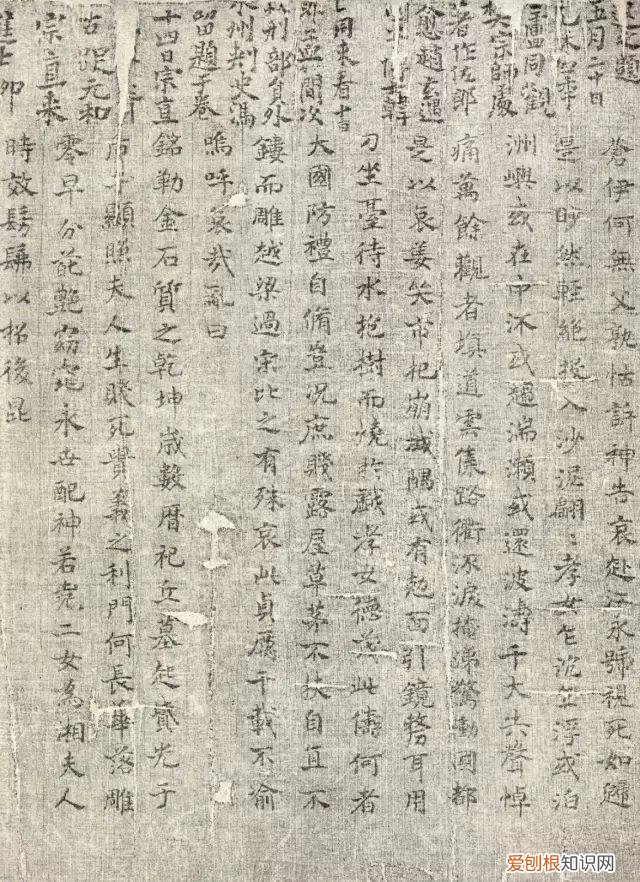 題
五月二十日
盧同觀
樊宗師處
著作佐郎
愈趙玄遇
韓
同來看
間次
刑部員外
永州刺史馮
留題于卷
十四日宗直
元和
宗直来
進士
蒼伊何無父孰怙訴神告哀赴江永號視死如歸
是以眇然輕絕投入沙泥翩〻孝女乍沉乍浮或泊
洲嶼或在中流或趨湍瀨或還波濤千夫共聲悼
痛萬餘觀者填道雲集路衢流淚掩涕驚動國都
是以哀姜哭市杞崩城隅或有尅面引鏡剺耳用
刀坐臺待水抱樹而燒於戲孝女德茂此儔何者
大國防禮自脩豈況庶賤露屋草茅不扶自直不
鏤而雕越梁過宋比之有殊哀此貞厲千載不渝
嗚呼哀哉亂曰
銘勒金石質之乾坤歲數曆祀丘墓起墳光于
后土顯照夫人生賤死貴義之利門何長華落雕
零早分葩艷窈窕永世配神若堯二女為湘夫人
時效髣髴以招後昆
爱刨根知识网